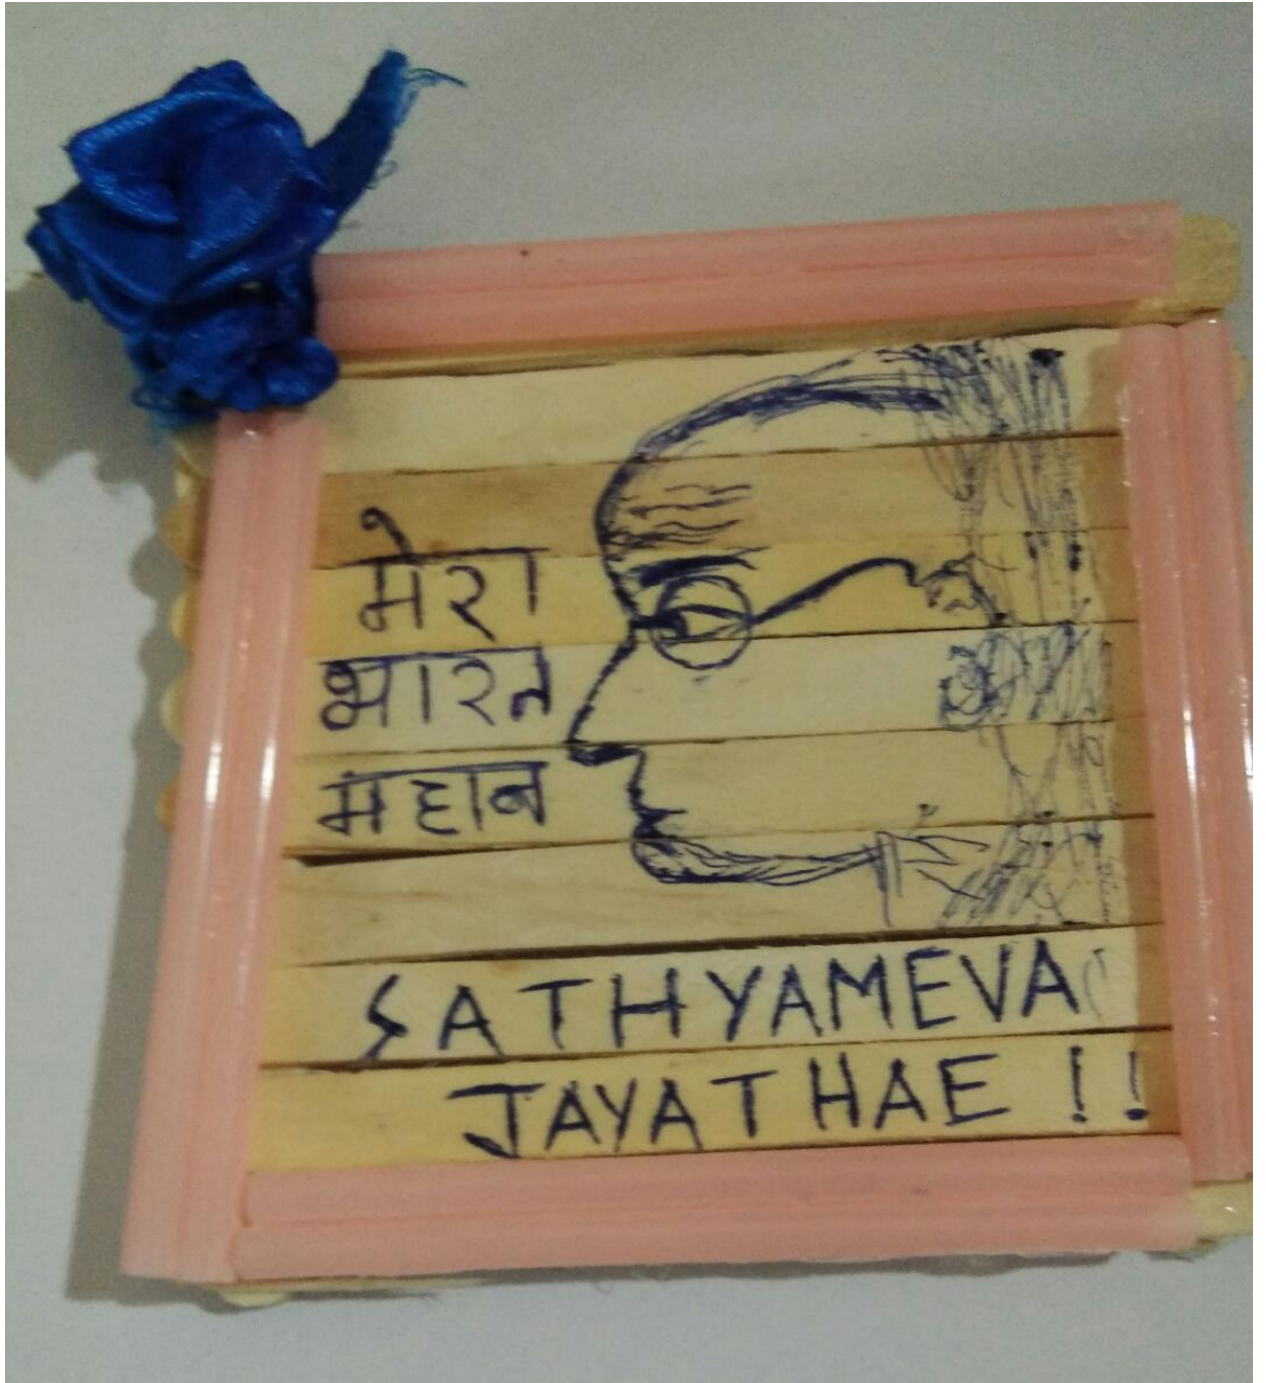 मेरा
भारत
महान
SATHYAMEVA
JAYATHAE !!